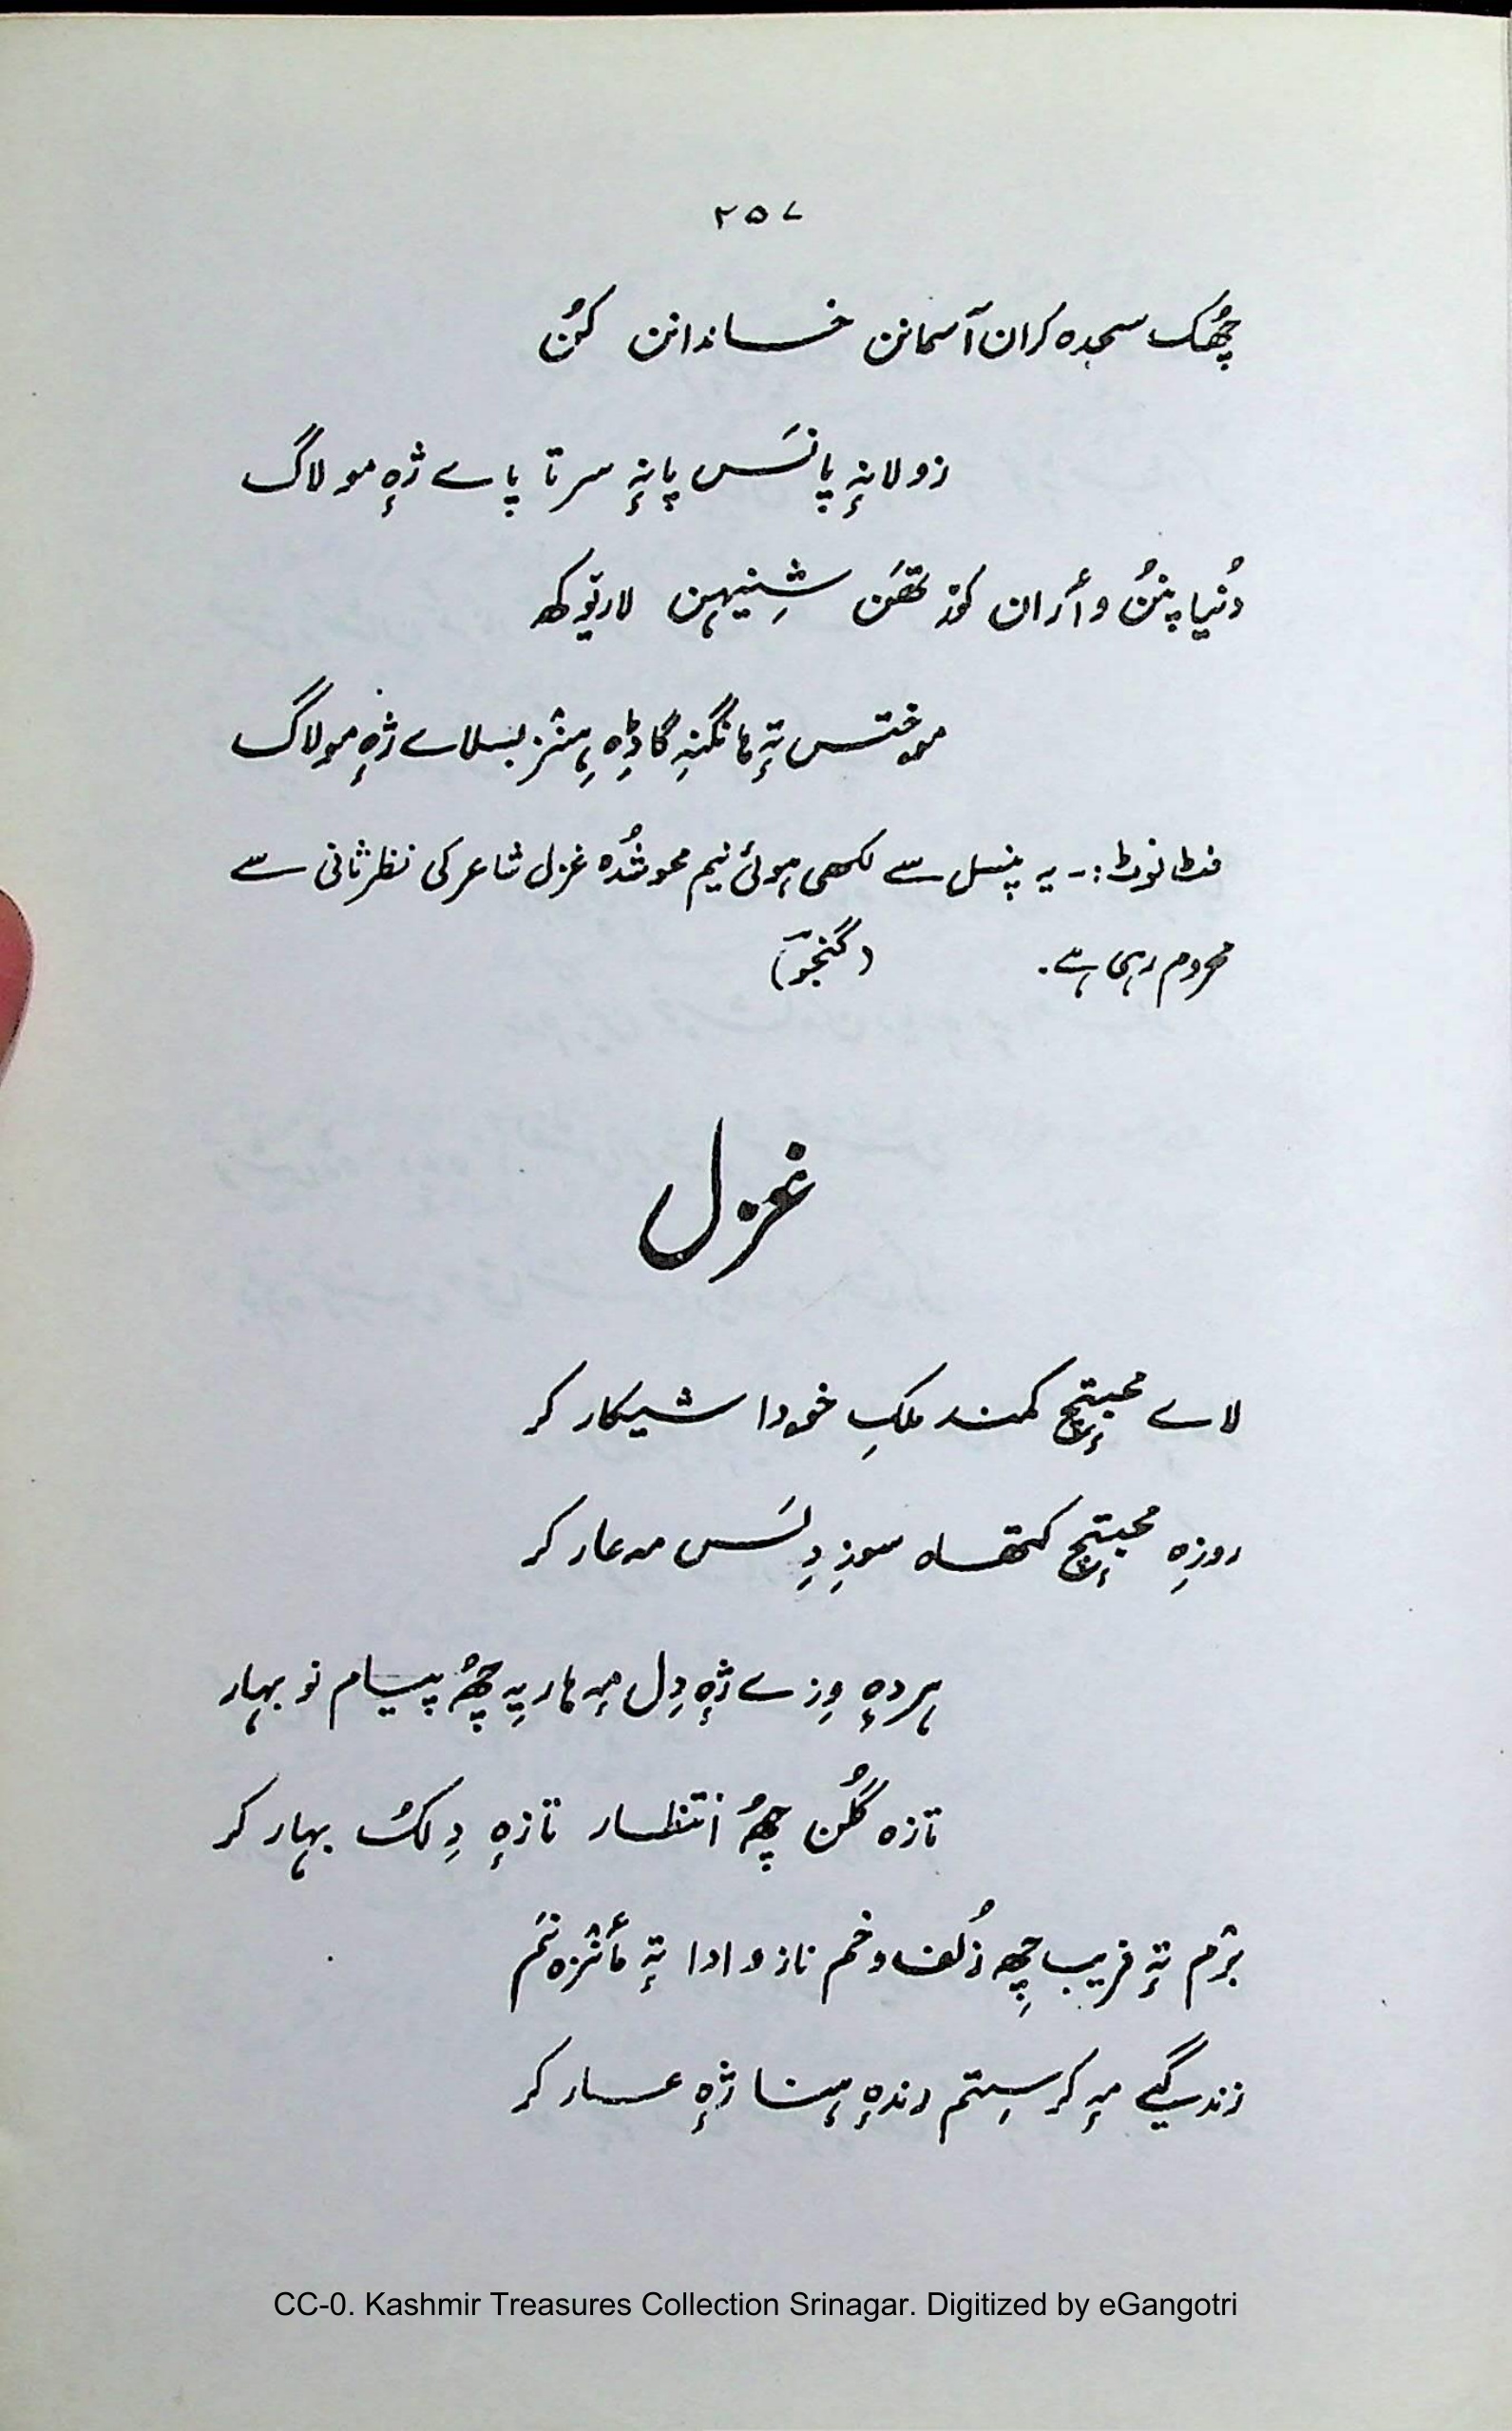 ۲۵۷
چھُک سجدہ کران آسمانن خاندانن کُن
زولانہٕ پانَس پانہٕ سر تا پاے ژہٕ مو لاگ
دُنیا پننُ وأران کوٚر تھَن شِنیہن لارِتوکھ
موختس تہٕ ہانگنہِ گاڈِہ ہِنٛز بسلاے ژہٕ مولاگ
فٹ نوٹ:۔ یہ پنسل سے لکھی ہوئی نیم محو شُدہ غزل شاعر کی نظر ثانی سے
محروم رہی ہے۔ (گنجوؔ)
غزل
لاے محبتٕچ کمند ملکِ خۄدا شیکار کر
روزِہ محبتٕچ کتھاہ سوزِ دِلَس مدعار کر
ہردہٕ وِزے ژہٕ دِل مہ ہار یہِ چھُ پیام نو بہار
تازہ گُلن چھُ انتظار تازہٕ دِلُک بہار کر
برٛم تہٕ فریب چھِ زُلف و خم ناز و ادا تہٕ مأنٛزہ نَم
زندگیے مہٕ کر سِتم رندہٕ ہٕنا ژہٕ عار کر
CC-0. Kashmir Treasures Collection Srinagar. Digitized by eGangotri